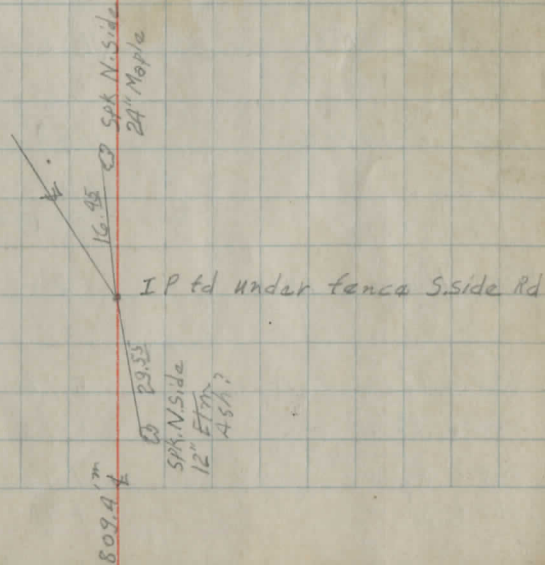 Spk. N. Side
24" Maple
16.95
I P fd under fence S. side Rd
29.55
Spk. N. Side
12" Elm
Ash?
809.4' m